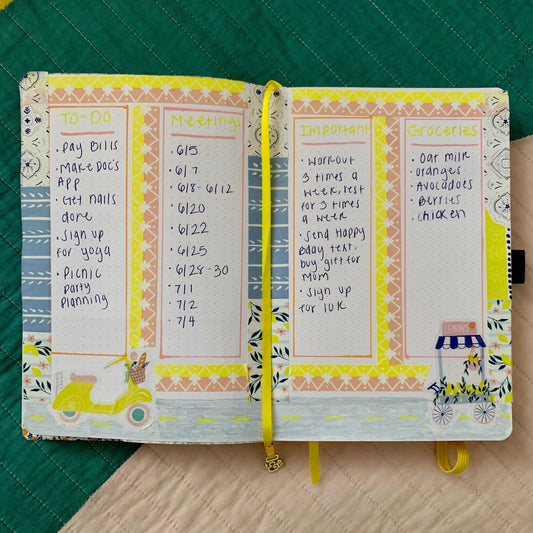 TO-DO
• Pay Bills
• Make Doc's
App
• Get nails
done
• Sign up
for yoga
• Picnic
party
planning
Meetings
• 6/5
• 6/7
• 6/8 - 6/12
• 6/20
• 6/22
• 6/25
• 6/28 - 30
• 7/1
• 7/2
• 7/4
Important
• Workout
3 times a
week, rest
for 3 times
a week
• Send Happy
Bday text,
buy gift for
Mom
• Sign up
for 10K
Groceries
• Oat milk
• Oranges
• Avocadoes
• Berries
• Chicken
LEMONS